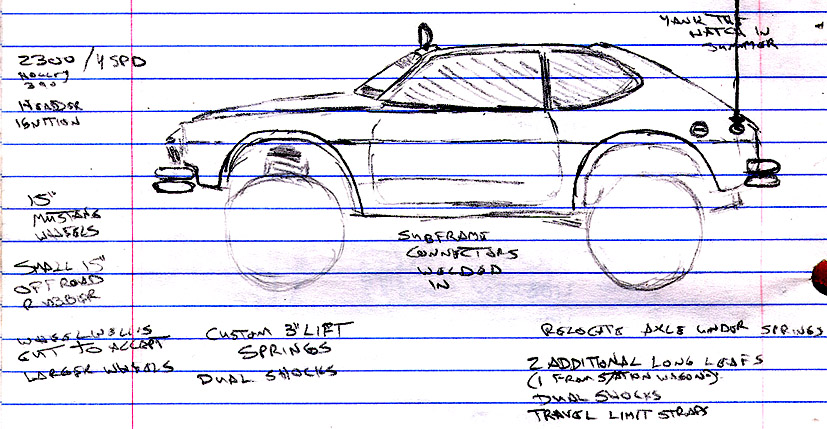 YANK THE
HATCH IN
SUMMER
2300 / 4 SPD
HOLLEY
390
HEADER
IGNITION
15"
MUSTANG
WHEELS
SMALL 15"
OFF ROAD
RUBBER
WHEELWELLS
CUT TO ACCEPT
LARGER WHEELS
SUBFRAME
CONNECTORS
WELDED
IN
CUSTOM 3" LIFT
SPRINGS
DUAL SHOCKS
RELOCATE AXLE UNDER SPRINGS
2 ADDITIONAL LONG LEAFS
(1 FROM STATION WAGON)
DUAL SHOCKS
TRAVEL LIMIT STRAPS